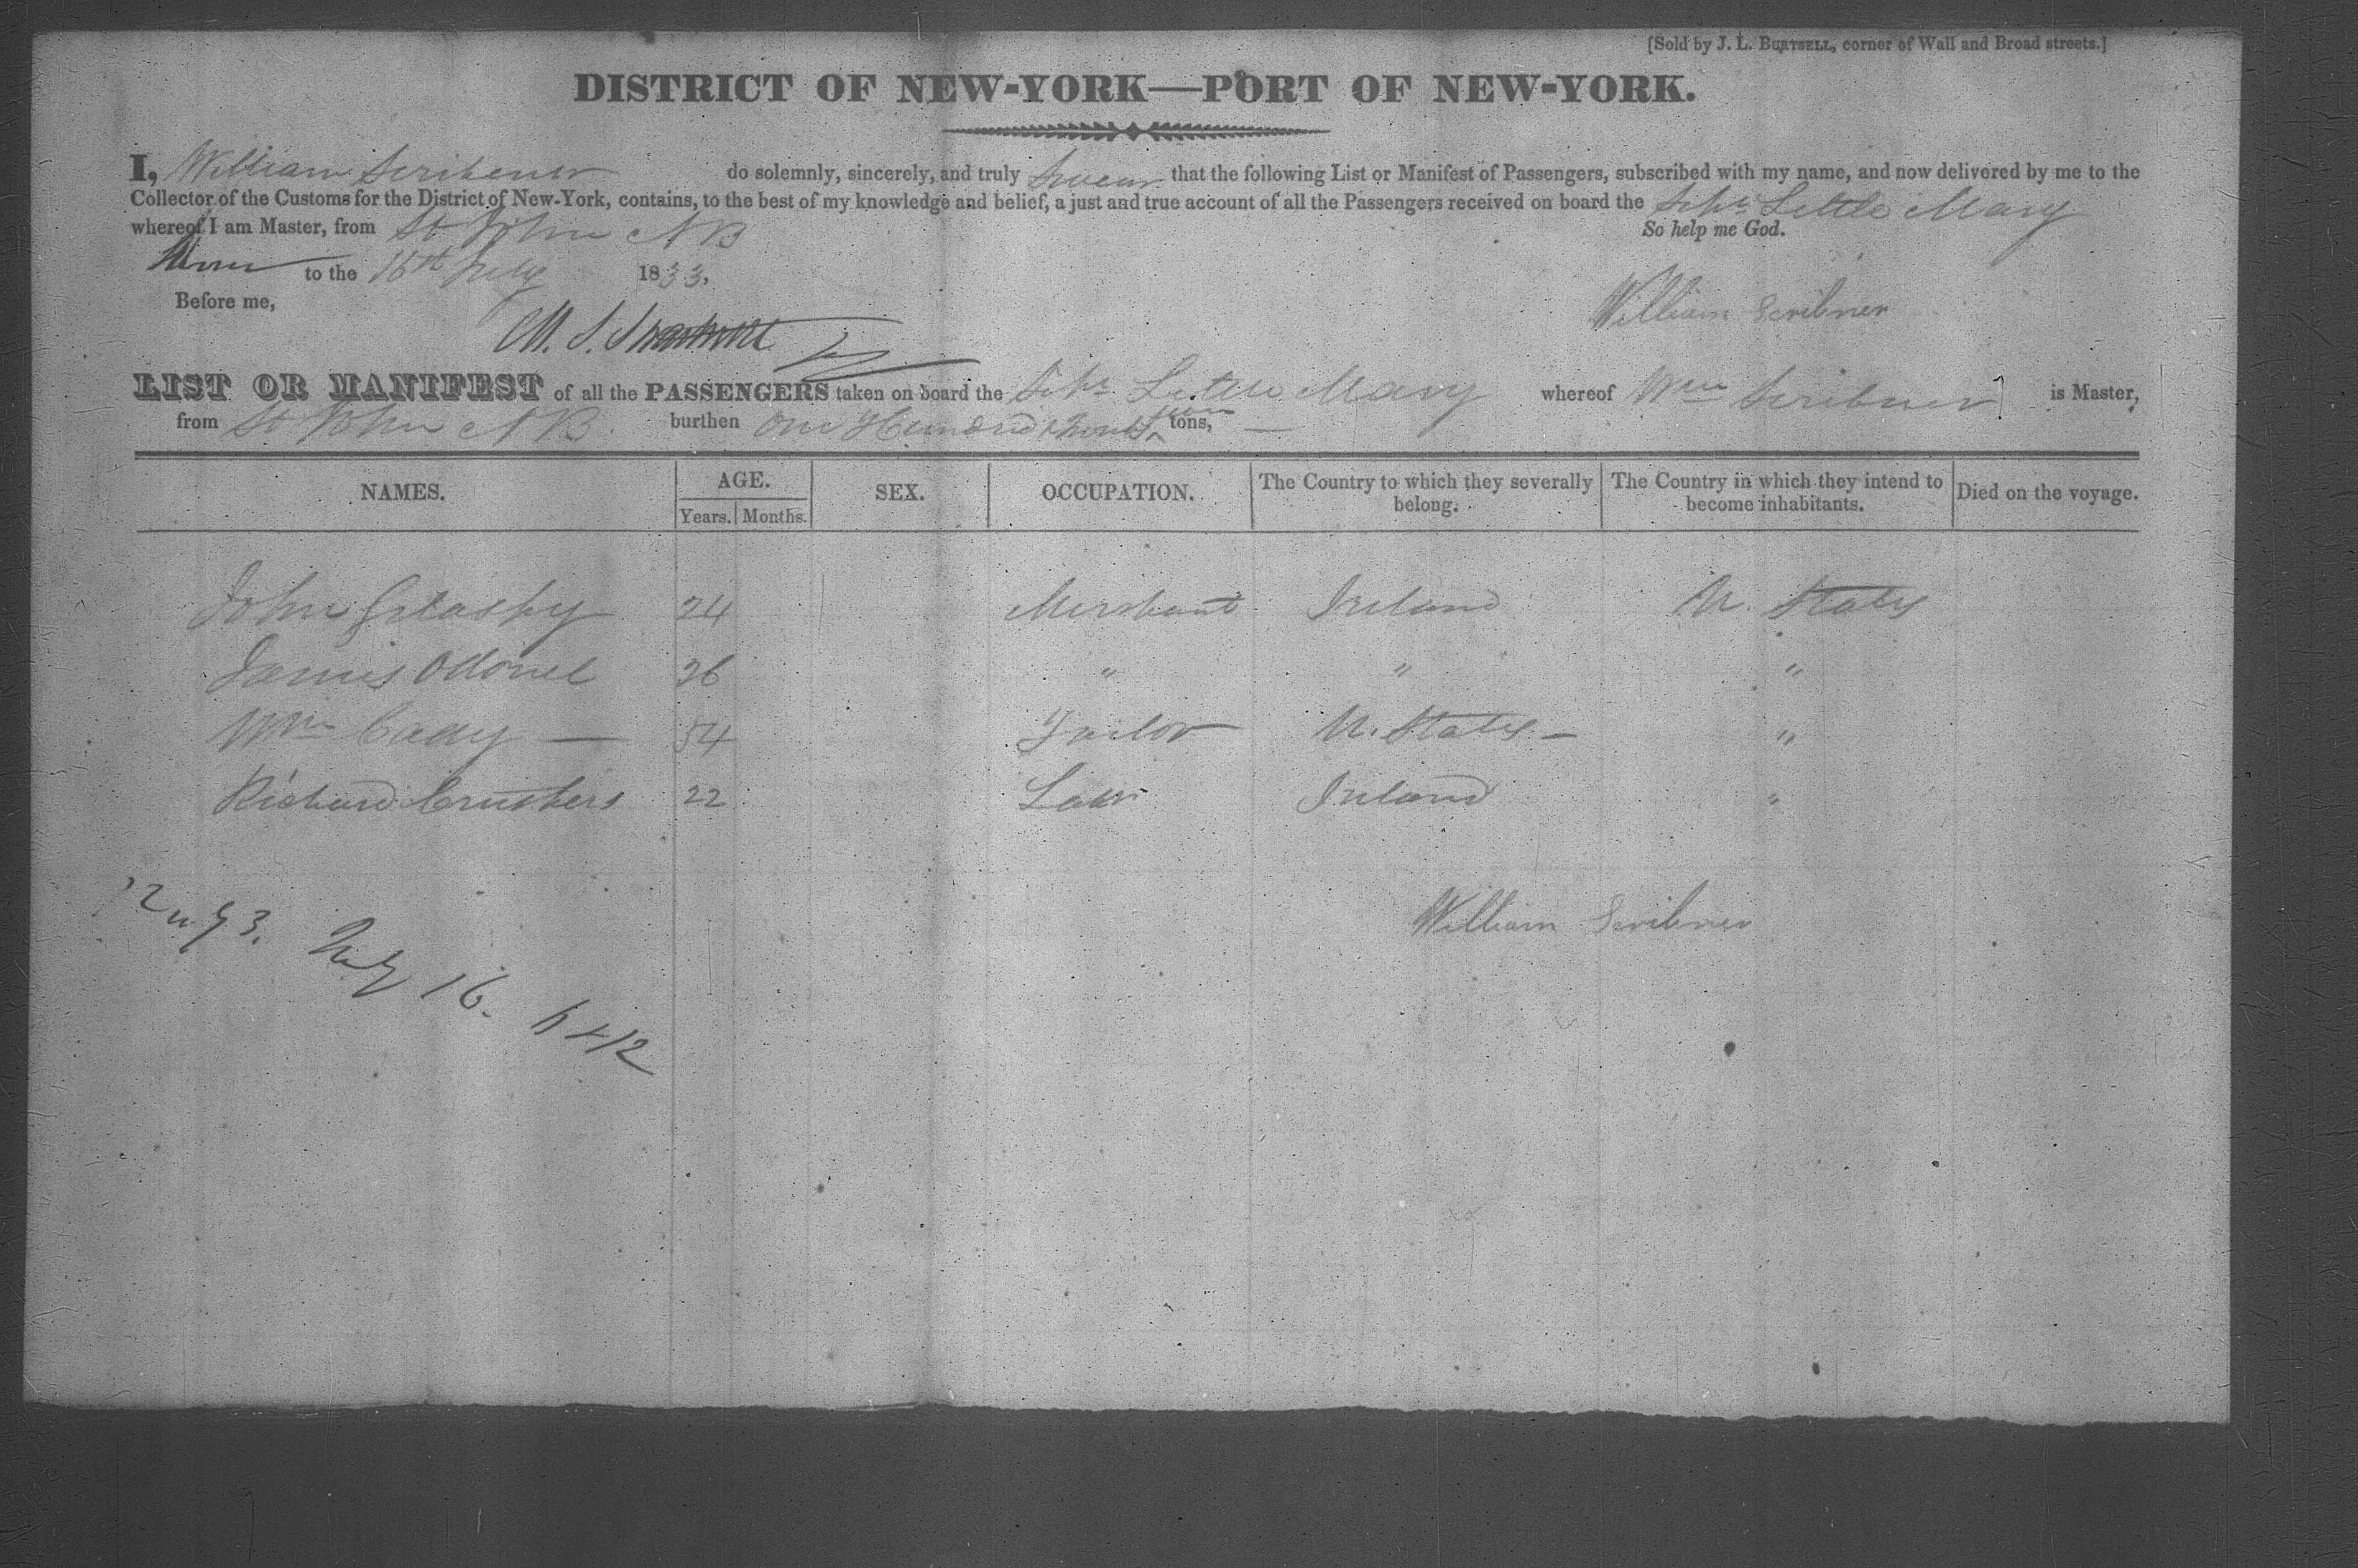 [Sold by J. L. BURTSELL, corner of Wall and Broad streets.]
DISTRICT OF NEW-YORK—PORT OF NEW-YORK.
I, William Scribener do solemnly, sincerely, and truly Swear that the following List or Manifest of Passengers, subscribed with my name, and now delivered by me to the
Collector of the Customs for the District of New-York, contains, to the best of my knowledge and belief, a just and true account of all the Passengers received on board the Schr Little Mary
whereof I am Master, from St John N B So help me God.
to the 16th July 1833.
William Scribner
Before me,
LIST OR MANIFEST of all the PASSENGERS taken on board the Schr Little Mary whereof Wm Scribner is Master,
from St John N B. burthen One Hundred & tons,
NAMES. AGE. SEX. OCCUPATION. The Country to which they severally belong. The Country in which they intend to become inhabitants. Died on the voyage.
Years. Months.
John 24 Merchant Ireland U. States
James 26 " " "
Wm Cady — 54 U. States — "
Richard 22 Ireland "
William Scribner
July 16.